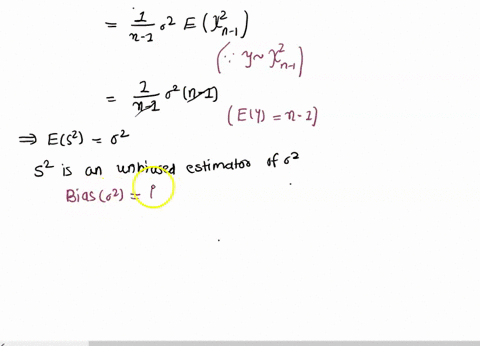 = 1/(n-1) σ² E(χ²ₙ₋₁)
(∵ y ~ χ²ₙ₋₁)
= 1/(n-1) σ² (n-1)
(E(y) = n-1)
⇒ E(S²) = σ²
S² is an unbiased estimator of σ²
Bias(σ²) =